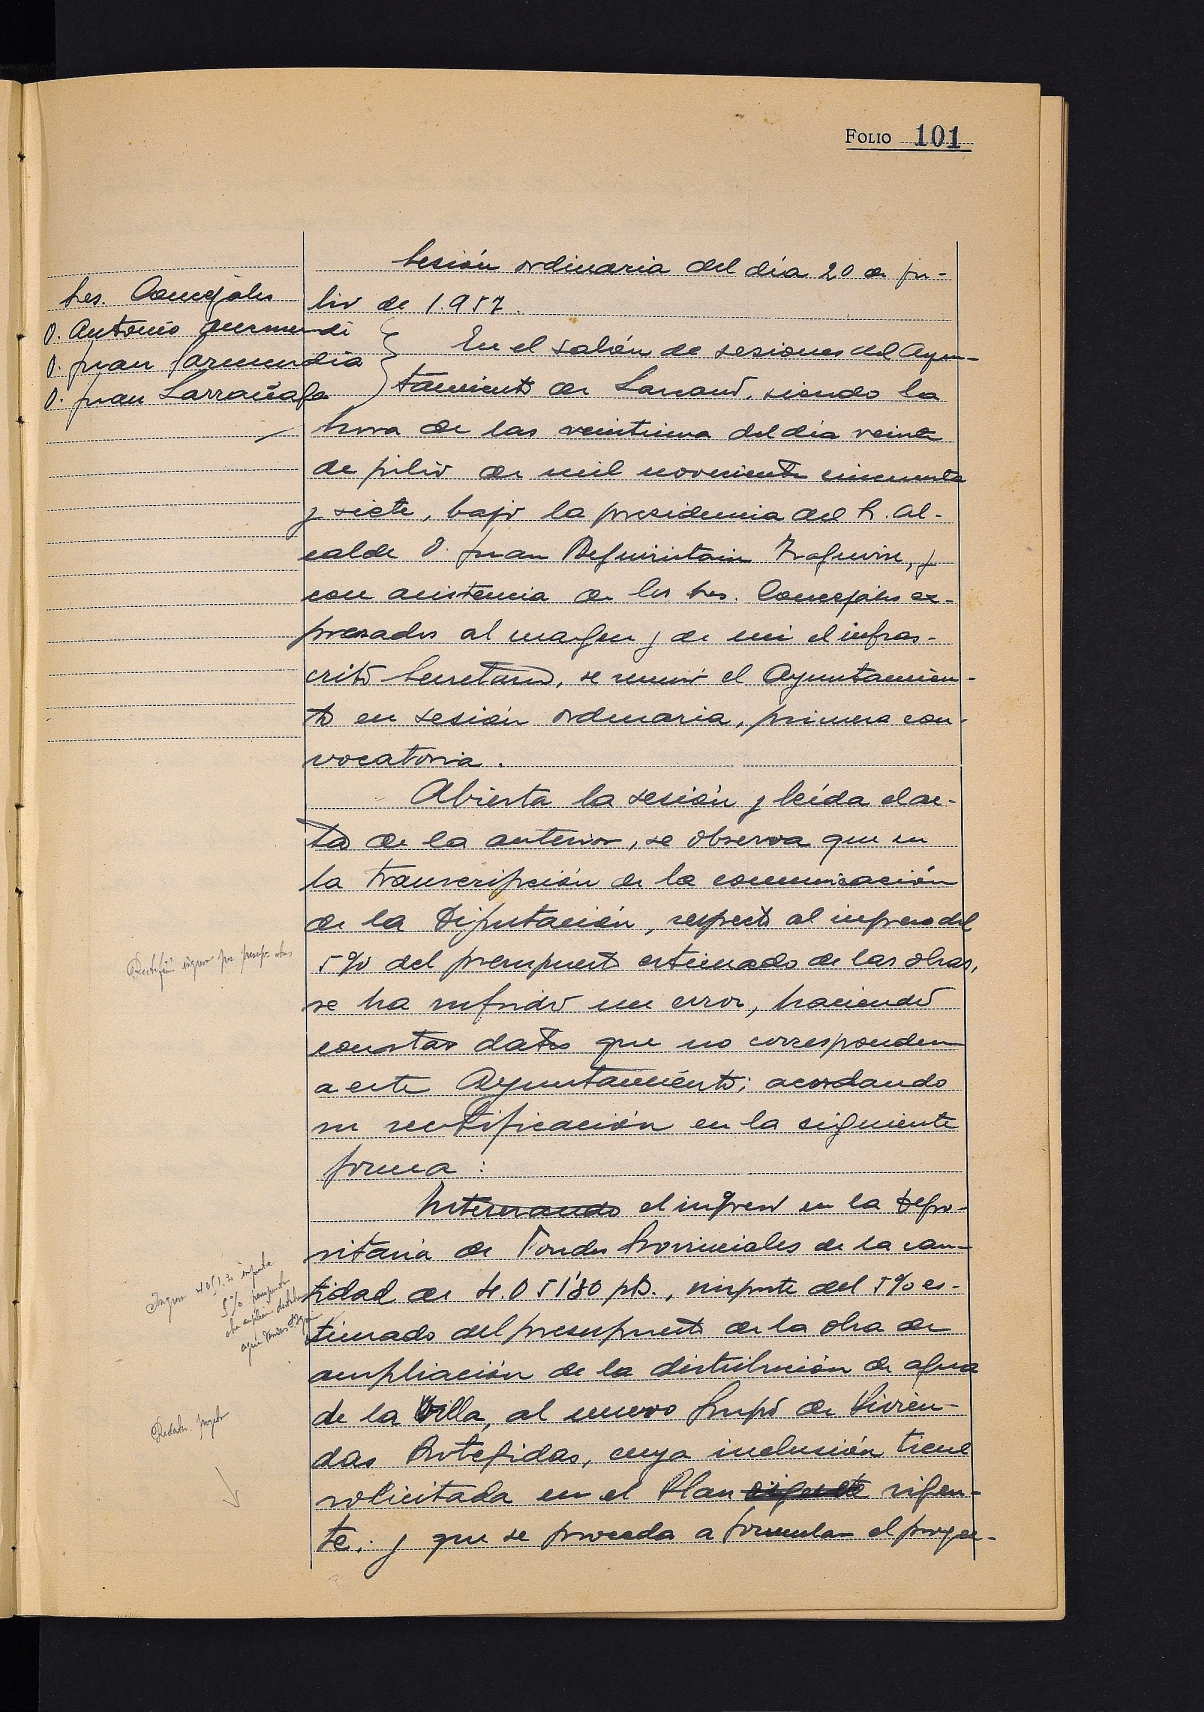 FOLIO 101
Sesión ordinaria del día 20 de ju-
lio de 1.957.
Sres. Concejales
D. Antonio
D. Juan Garmendia
D. Juan Larrañaga
En el salón de sesiones del Ayun-
tamiento de siendo la
hora de las veintiuna del día veinte
de julio de mil novecientos cincuenta
y siete, bajo la presidencia del Sr. Al-
calde D. Juan Beguiristain y
con asistencia de los Sres. Concejales ex-
presados al margen y de mi el infras-
crito Secretario, se reunió el Ayuntamien-
to en sesión ordinaria, primera con-
vocatoria.
Abierta la sesión y leída el ac-
ta de la anterior, se observa que en
la transcripción de la comunicación
de la Diputación, respecto al ingreso del
5% del presupuesto estimado de las obras,
se ha sufrido un error, haciendo
constar datos que no corresponden
a este Ayuntamiento; acordando
su rectificación en la siguiente
forma:
el ingreso en la Depo-
sitaria de Fondos Provinciales de la can-
tidad de 4.051'80 pts., importe del 5% es-
timado del presupuesto de la obra de
ampliación de la distribución de agua
de la Villa, al nuevo Grupo de Vivien-
das Protegidas, cuya inclusión tiene
solicitada en el Plan vigen-
te; y que se proceda a formular el proyec-
ingreso por presup. obras
Ingreso importe
5% presupuesto
Redactar proyecto